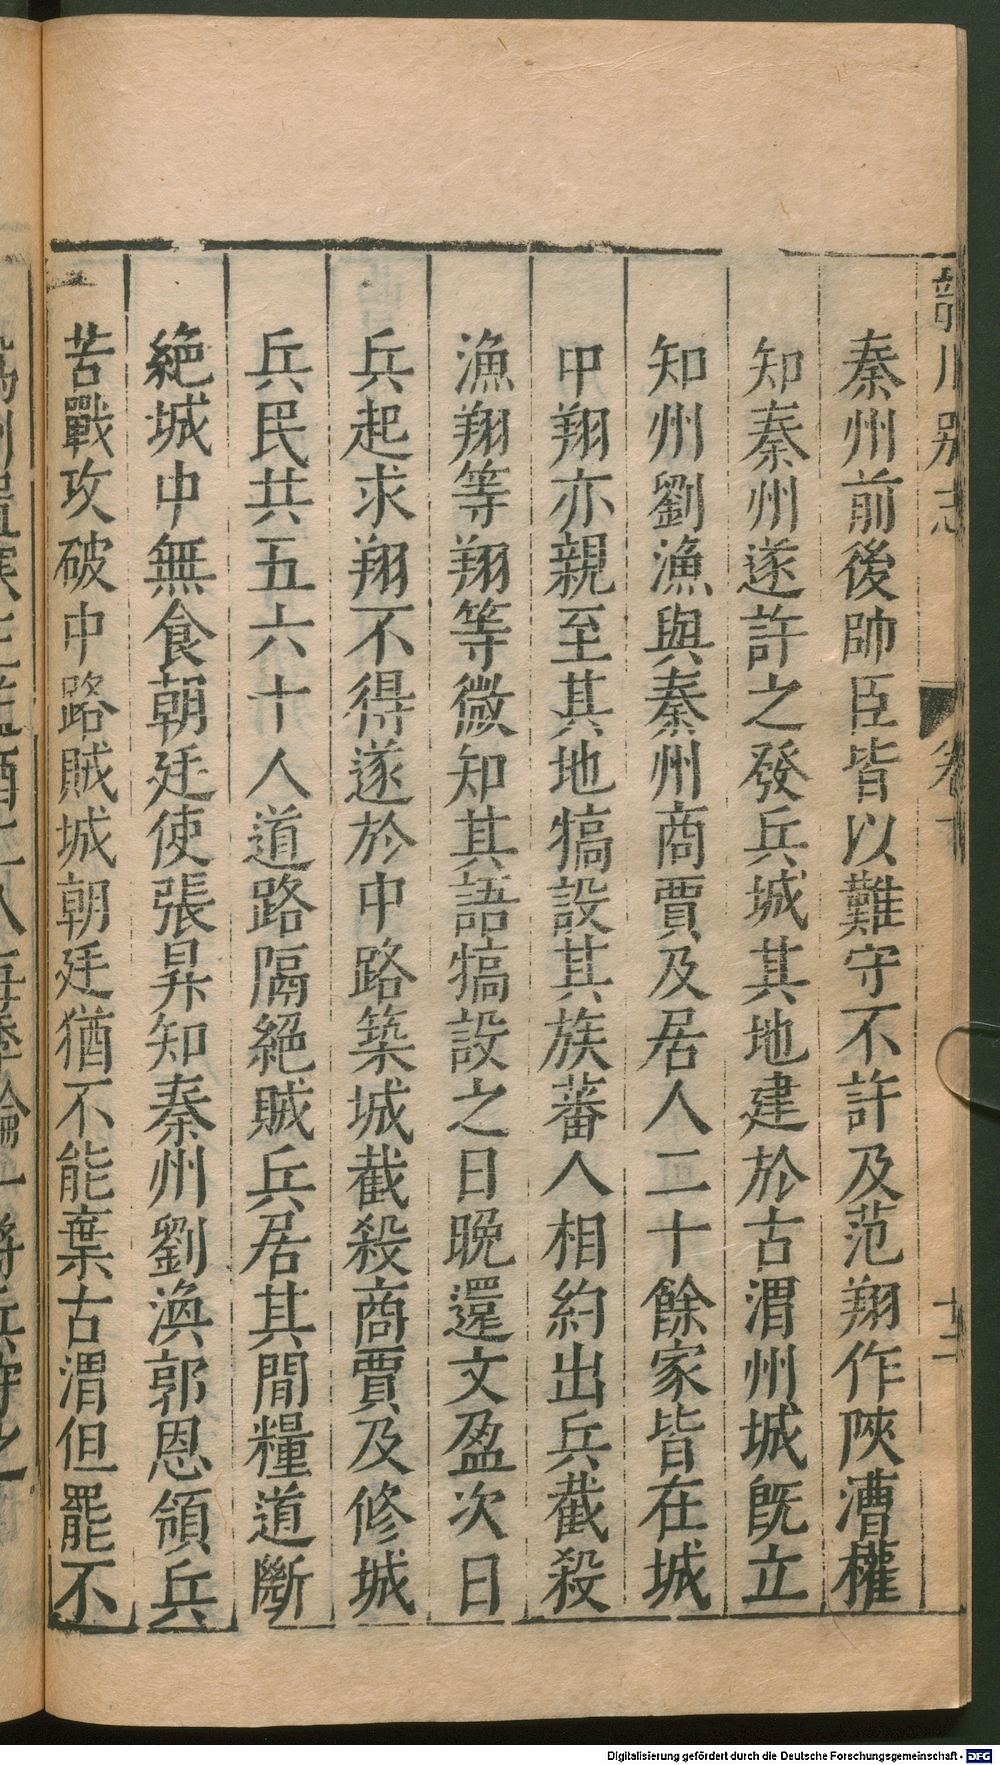 龍川別志 卷下 十二
秦州前後帥臣皆以難守不許及范翔作陝漕權
知秦州遂許之發兵城其地建於古渭州城旣立
知州劉漁與秦州商賈及居人二十餘家皆在城
中翔亦親至其地犒設其族蕃人相約出兵截殺
漁翔等翔等微知其語犒設之日晩還文盈次日
兵起求翔不得遂於中路築城截殺商賈及修城
兵民共五六十人道路隔絕賊兵居其間糧道斷
絕城中無食朝廷使張昪知秦州劉渙郭恩領兵
苦戰攻破中路賊城朝廷猶不能棄古渭但罷不
Digitalisierung gefördert durch die Deutsche Forschungsgemeinschaft - DFG